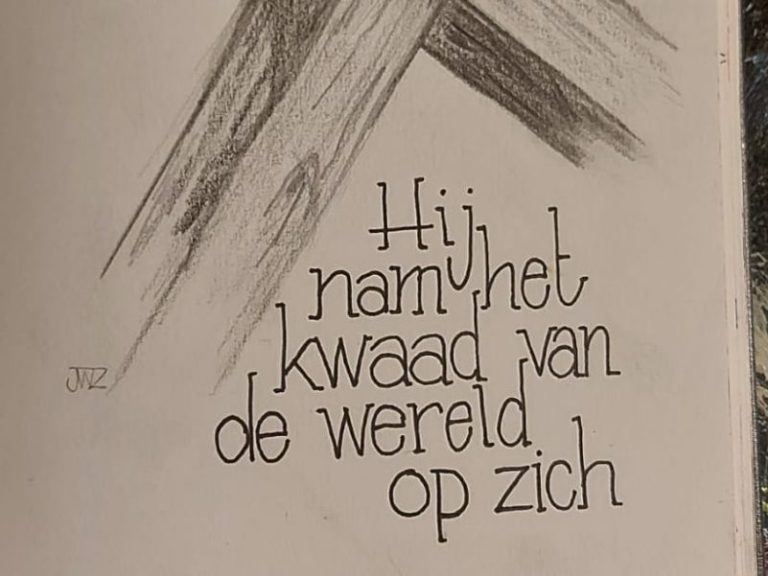 Hij
nam het
kwaad van
de wereld
op zich
JWZ